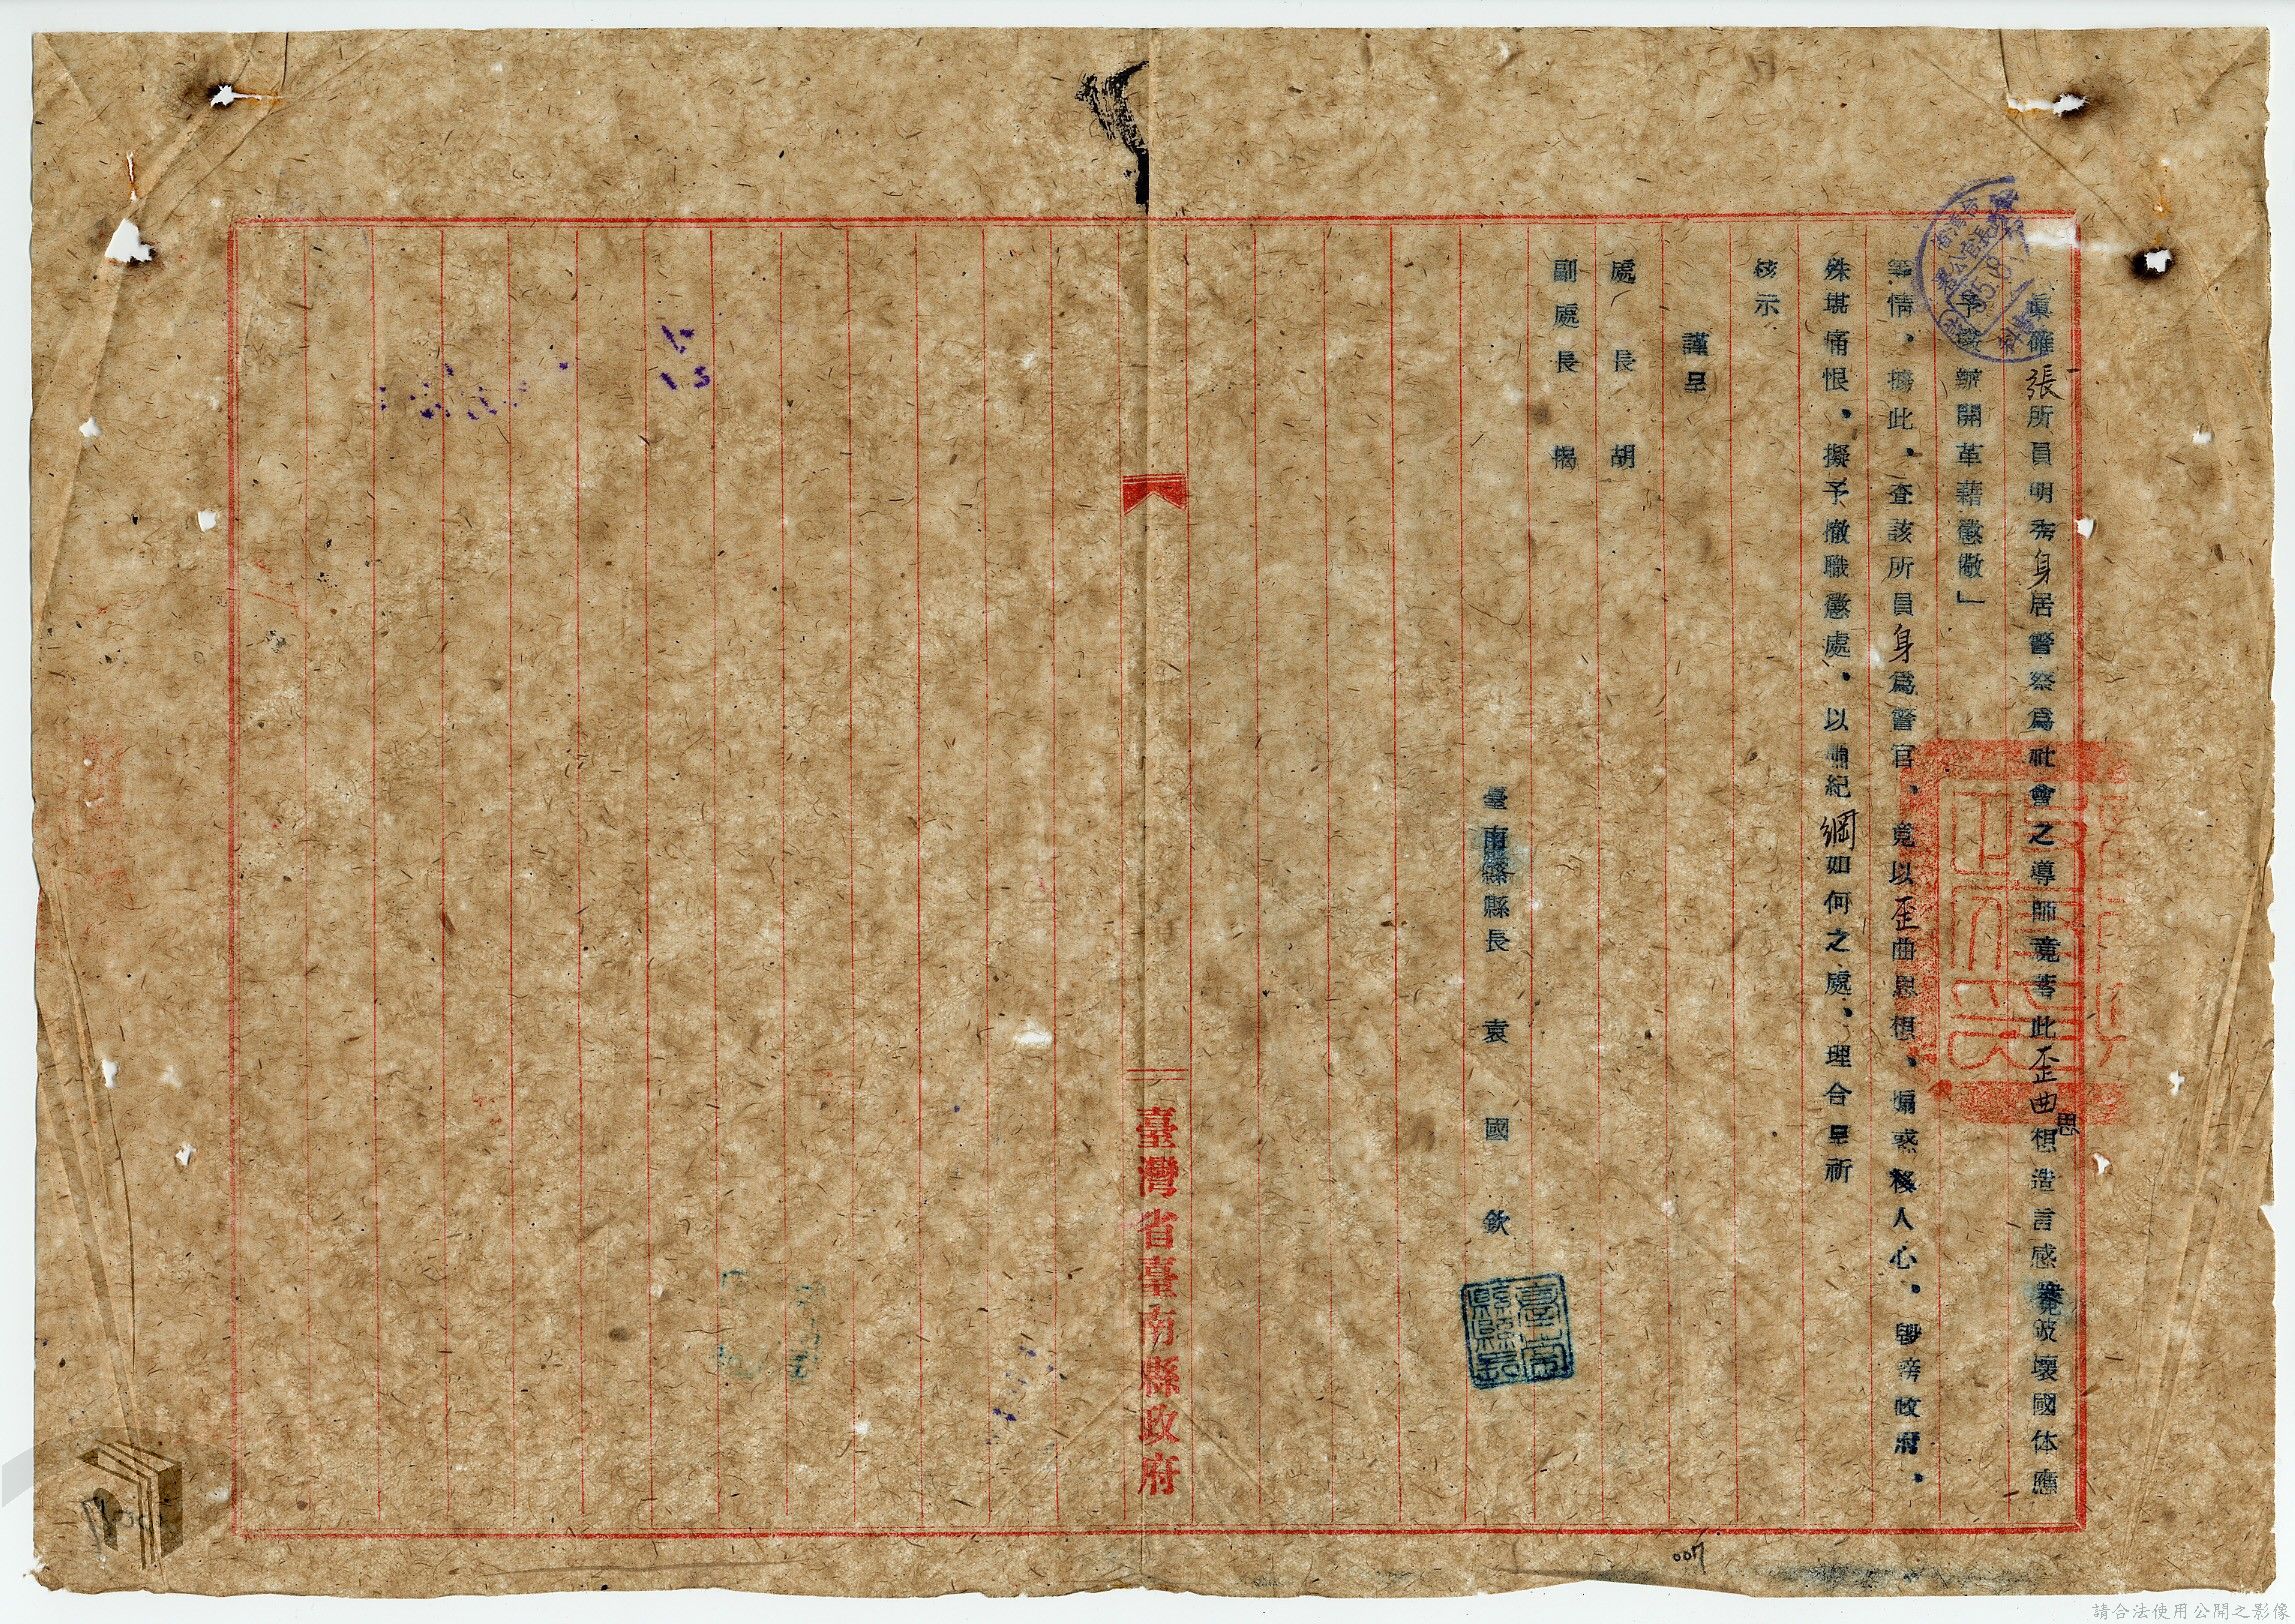 眞確張所員明秀身居警察爲社會之導師竟若此歪曲思想造言惑衆破壞國体應
予撤辦開革藉懲儆」
等情，據此，查該所員身爲警官，竟以歪曲思想，煽惑人心，毀謗政府，
殊堪痛恨，擬予撤職懲處，以肅紀綱如何之處，理合呈祈
核示
謹呈
處長 胡
副處長 楊
臺南縣縣長 袁國欽
臺灣省臺南縣政府
007
請合法使用公開之影像